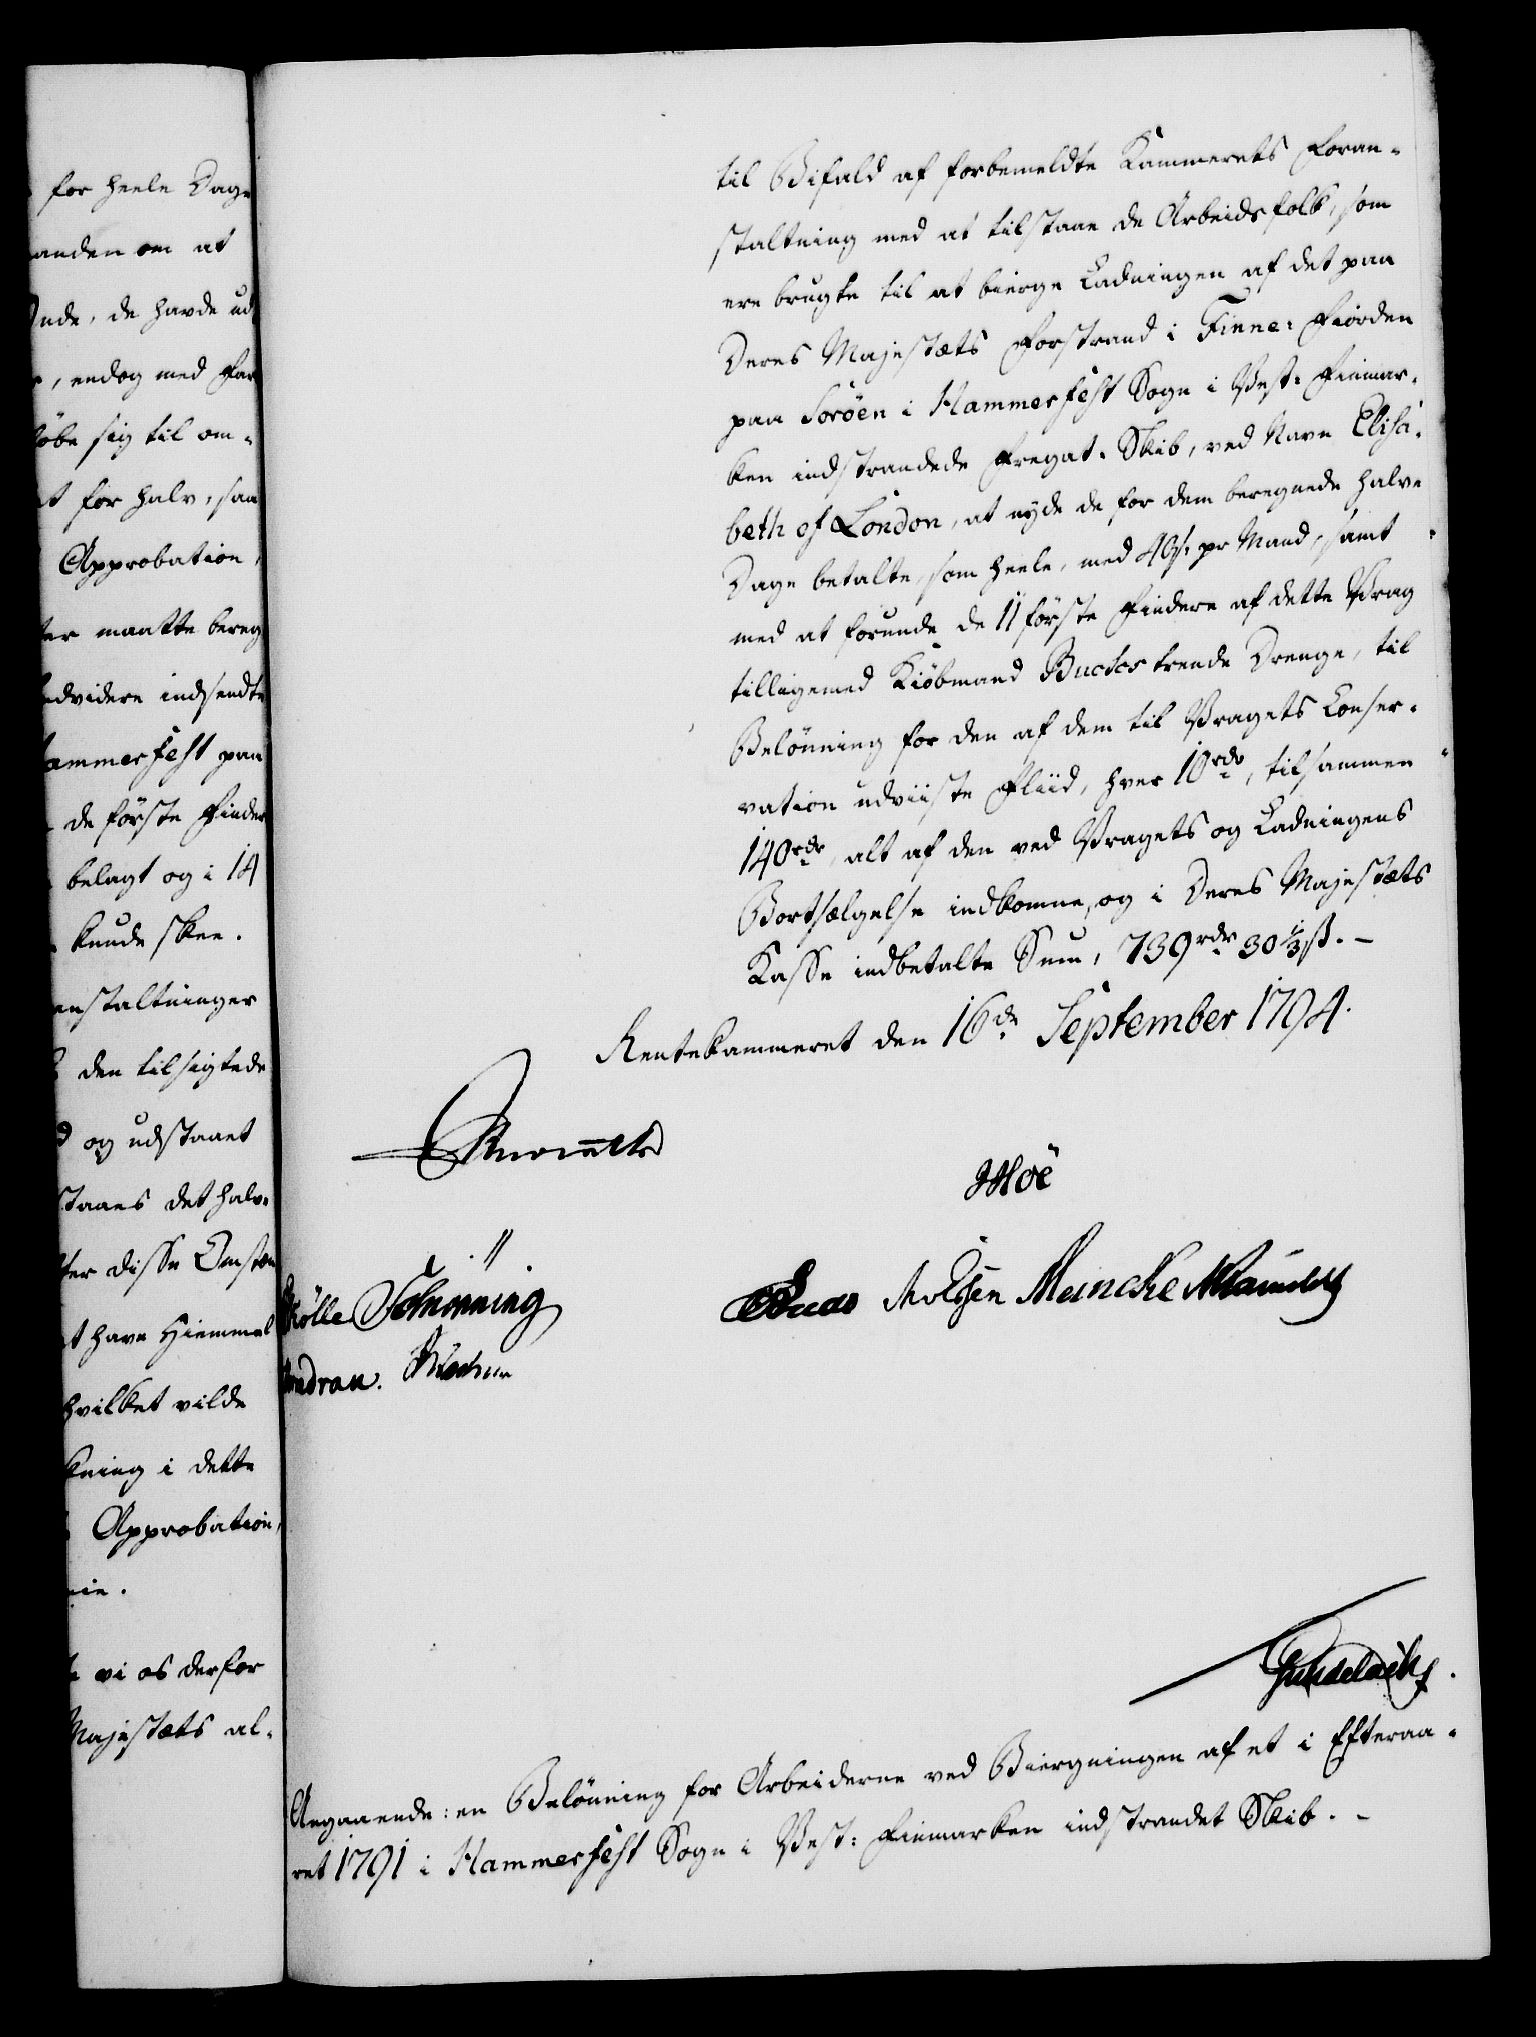 for heele Dage
anden om at
de havde ud
, endog med Far
løbe sig til om-
t for halv, saa
Approbation,
er maatte bereg
edvidere indsendte
ammerfest paa
de første Finder
belagt og i 14
kunde skee.
anstaltninger
den tilsigtede
og udstaaet
staaes det halv-
ter disse Omstæn
t have Hiemmel
hvilket vilde
kning i dette
Approbation,
vi os derfor
Majestæts al-
til Bifald af forbemeldte Kammerets Foran-
staltning med at tilstaae de Arbeidsfolk, som
ere brugte til at bierge Ladningen af det paa
Deres Majestæts Forstrand i Finne-Fiorden
paa Sorøen i Hammerfest Sogn i Vest-Finmar-
ken indstrandede Fregat-Skib, ved Navn Elisa-
beth of London, at nyde de for dem beregnede halve
Dage betalte, som heele, med 48 s. pr Mand, samt
med at forunde de 11 første Findere af dette Vrag
tilligemed Kiøbmand Buchs trende Drenge, til
Belønning for den af dem til Vragets Conser-
vation udviiste Fliid, hver 10 rdr, tilsammen
140 rdr, alt af den ved Vragets og Ladningens
Bortsælgelse indkomne, og i Deres Majestæts
Kasse indbetalte Sum, 739 rdr 30 1/3 ß. -
Rentekammeret den 16de September 1794.
Moe
Rølle Schønning
Meincke
Angaaende: en Belønning for Arbeiderne ved Biergningen af et i Efteraa-
ret 1791 i Hammerfest Sogn i Vest: Finmarken indstrandet Skib. -